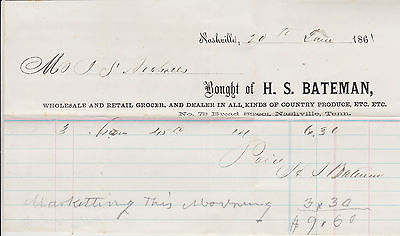 Nashville, 20th June 1861
Mr J S
Bought of H. S. BATEMAN,
WHOLESALE AND RETAIL GROCER, AND DEALER IN ALL KINDS OF COUNTRY PRODUCE, ETC. ETC.
No. 79 Broad Street, Nashville, Tenn.
3 6.30
Paid
H S Bateman
Marketting This Morning 3.30
$9.60